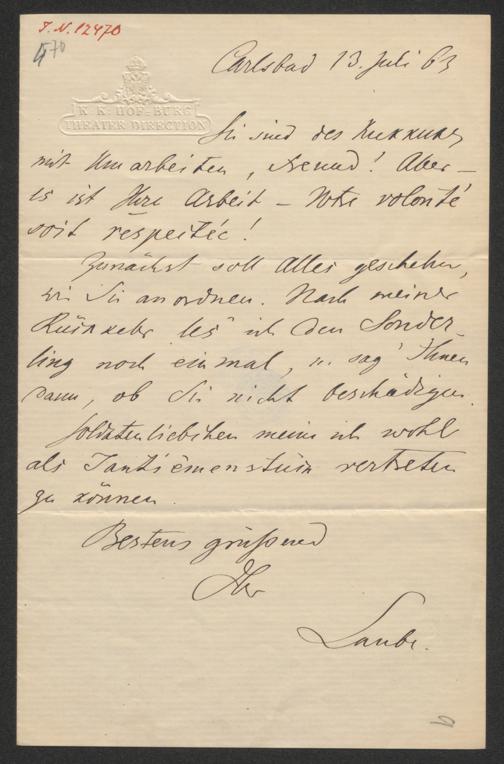 J. N. 12470
570
K. K. HOF-BURG
THEATER DIRECTION
Carlsbad 13. Juli 63
Sie sind des Kukkuks
mit Umarbeiten, Freund! Aber –
es ist Ihre Arbeit – Votre volonté
soit respectée!
Zunächst soll Alles geschehen,
wie Sie anordnen. Nach meiner
Rückkehr les' ich den Sonder-
ling noch einmal, u. sag' Ihnen
dann, ob Sie nicht beschädigen.
Soldatenliebchen meine ich wohl
als Tantièmenstück vertreten
zu können.
Bestens grüßend
Ihr
Laube.